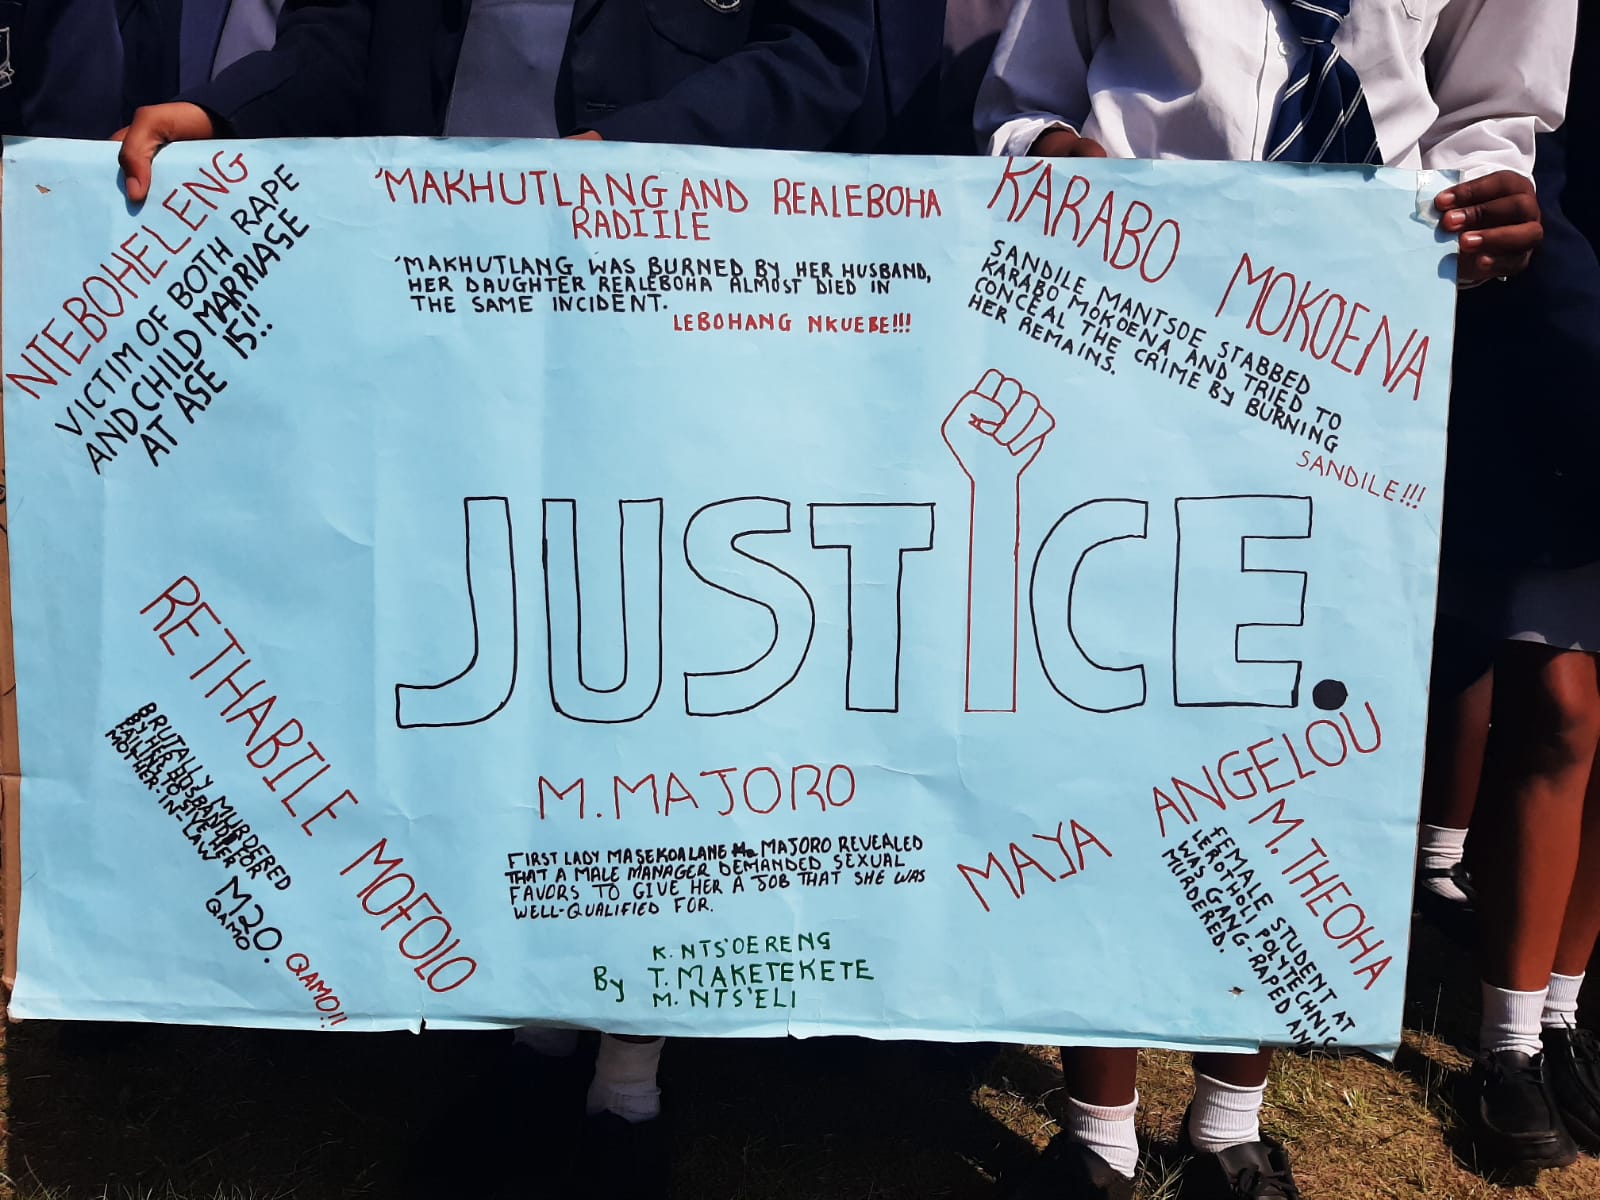 NTEBOHELENG
VICTIM OF BOTH RAPE
AND CHILD MARRIASE
AT ASE 15!!
'MAKHUTLANG AND REALEBOHA
RADIILE
'MAKHUTLANG WAS BURNED BY HER HUSBAND,
HER DAUGHTER REALEBOHA ALMOST DIED IN
THE SAME INCIDENT.
LEBOHANG NKUEBE!!!
KARABO MOKOENA
SANDILE MANTSOE STABBED
KARABO MOKOENA AND TRIED TO
CONCEAL THE CRIME BY BURNING
HER REMAINS.
SANDILE!!!
JUSTICE.
RETHABILE MOFOLO
BRUTALLY MURDERED
BY HER HUSBAND FOR
FAILING TO GIVE HER
MOTHER-IN-LAW M20.
QAMO
QAMO!!
M. MAJORO
FIRST LADY MASEKOALANE MAJORO REVEALED
THAT A MALE MANAGER DEMANDED SEXUAL
FAVORS TO GIVE HER A JOB THAT SHE WAS
WELL-QUALIFIED FOR.
K. NTS'OERENG
By T. MAKETEKETE
M. NTS'ELI
MAYA ANGELOU
M. THEOHA
FEMALE STUDENT AT
LEROTHOLI POLYTECHNIC
WAS GANG-RAPED AN
MURDERED.